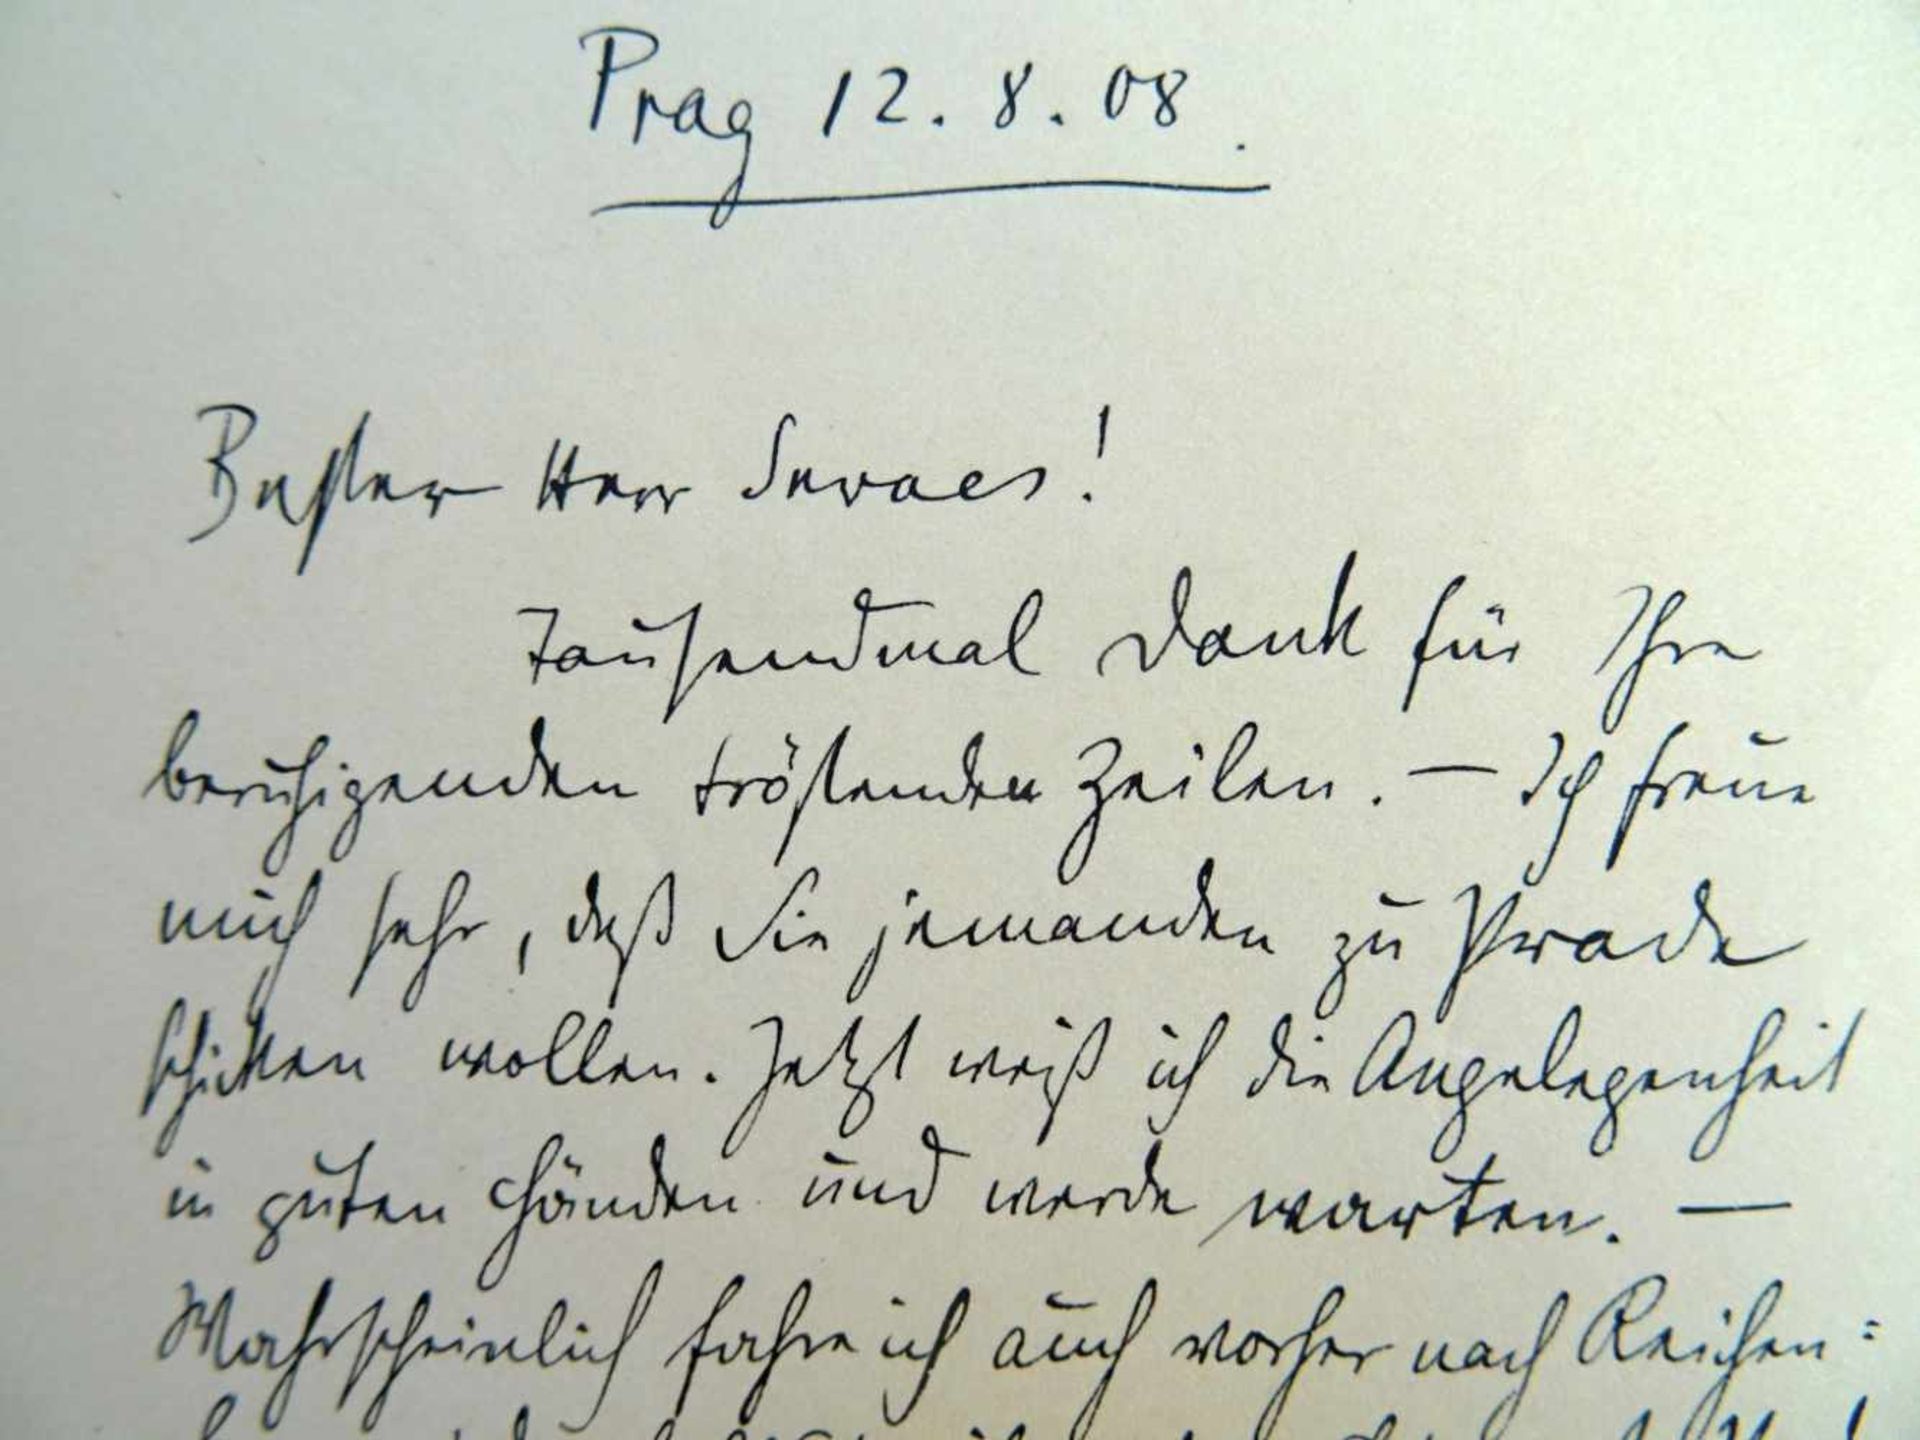 Prag 12. 8. 08.
Bester Herr Servaes!
Tausendmal Dank für Ihre
beruhigenden tröstenden Zeilen. — Ich freue
mich sehr, daß Sie jemanden zu Prade
schicken wollen. Jetzt weiß ich die Angelegenheit
in guten Händen und werde warten. —
Wahrscheinlich fahre ich auch vorher nach Reichen=